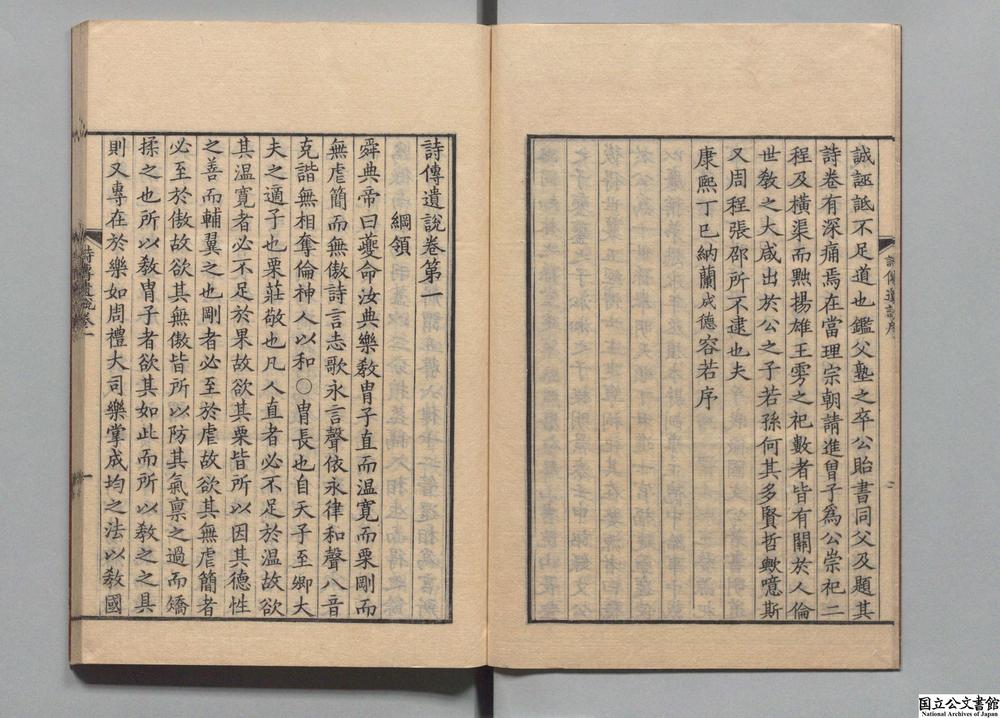 誠誣詆不足道也鑑父塾之卒公貽書同父及題其
詩卷有深痛焉在當理宗朝請進曾子為公崇祀二
程及橫渠而黜揚雄王雱之祀數者皆有關於人倫
世敎之大咸出於公之子若孫何其多賢哲歟噫斯
又周程張邵所不逮也夫
康熙丁巳納蘭成德容若序
詩傳遺說序
詩傳遺說卷第一
綱領
舜典帝曰夔命汝典樂敎胄子直而温寛而栗剛而
無虐簡而無傲詩言志歌永言聲依永律和聲八音
克諧無相奪倫神人以和○胄長也自天子至卿大
夫之適子也栗莊敬也凡人直者必不足於温故欲
其温寛者必不足於果故欲其栗皆所以因其德性
之善而輔翼之也剛者必至於虐故欲其無虐簡者
必至於傲故欲其無傲皆所以防其氣禀之過而矯
揉之也所以敎胄子者欲其如此而所以敎之之具
則又專在於樂如周禮大司樂掌成均之法以敎國
詩傳遺說卷一
一
国立公文書館
National Archives of Japan